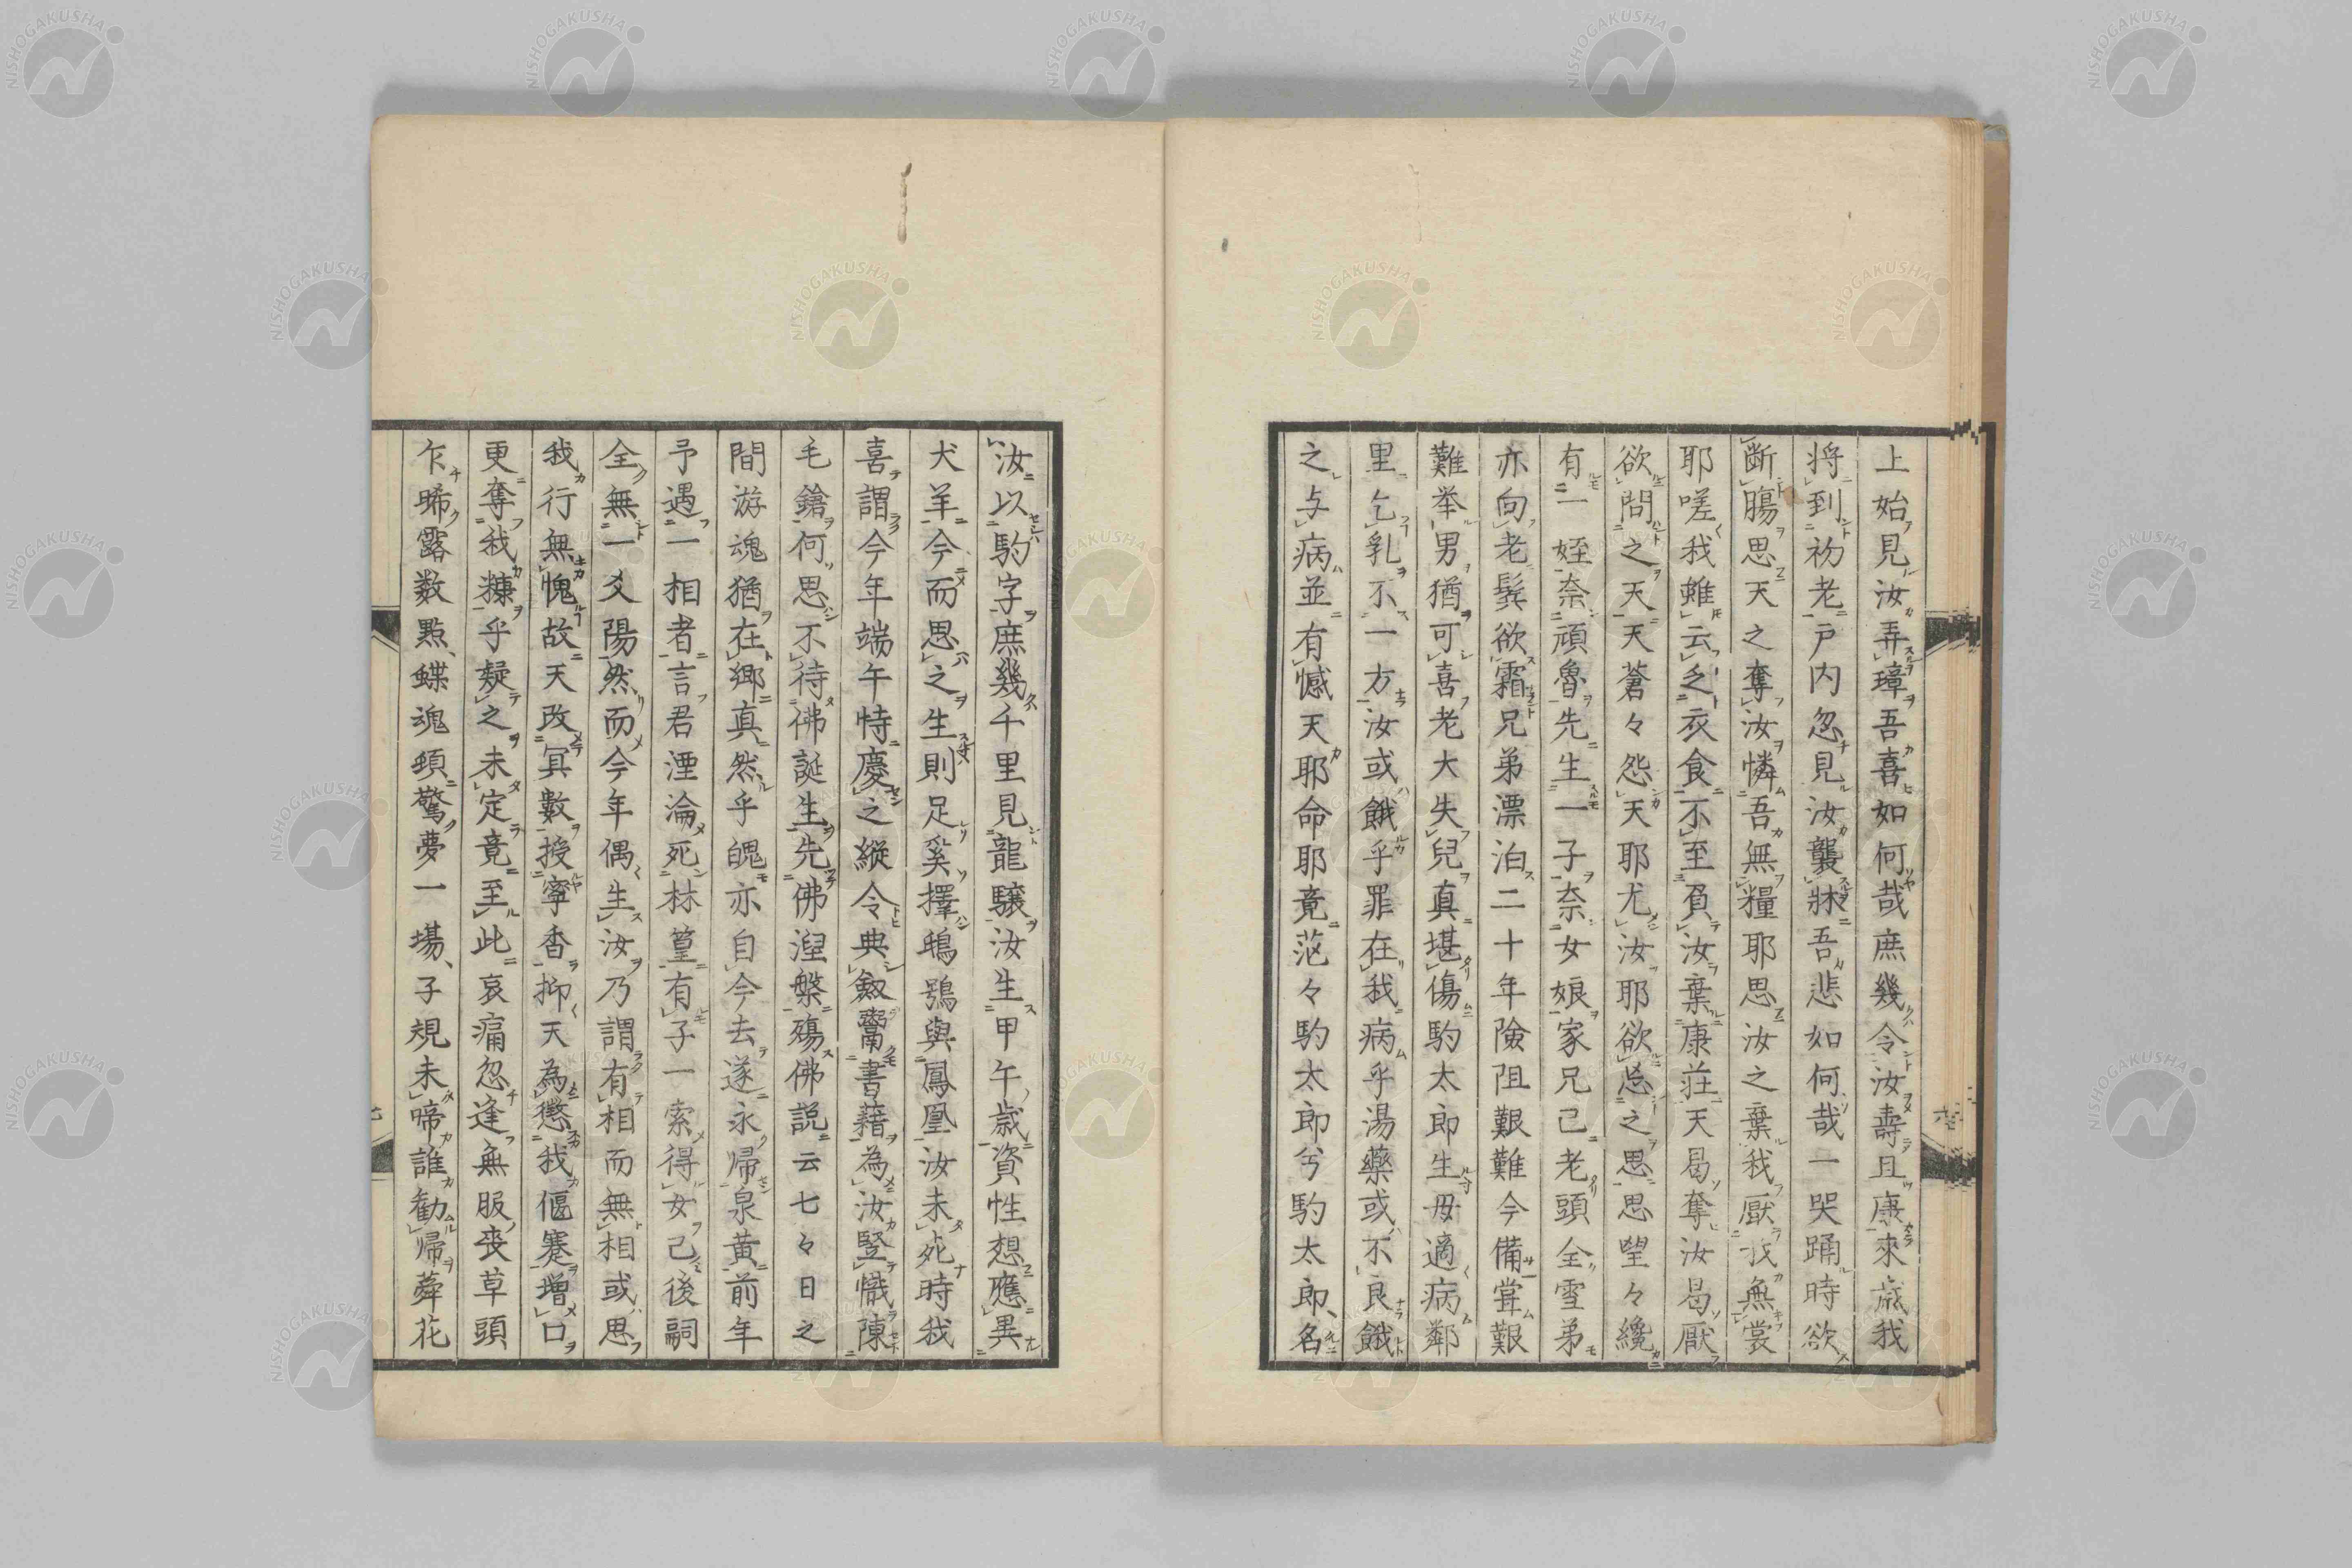 上始見汝弄璋吾喜如何哉庶幾令汝壽且康來歳我
将到初老戸内忽見汝襲牀吾悲如何哉一哭踊時欲
断膓思天之奪汝憐吾無糧耶思汝之棄我厭我無裳
耶嗟我雖云乏衣食不至負汝棄康莊天曷奪汝曷厭
欲問之天天蒼々怨天耶尤汝耶欲忘之思思望々纔
有一姪奈頑魯先生一子奈女娘家兄已老頭全雪弟
亦向老髩欲霜兄弟漂泊二十年険阻艱難今備甞艱
難举男猶可喜老大失兒真堪傷駒太郎生毋適病鄰
里乞乳不一方汝或餓乎罪在我病乎湯藥或不良餓
之与病並有憾天耶命耶竟茫々駒太郎兮駒太郎、名
汝以駒字庶幾千里見龍驤汝生甲午歳資性想應異
犬羊今而思之生則足奚擇鴟鴞與鳳凰汝未死時我
喜謂今年端午恃慶之縦令典劔鬻書藉為汝竪幟陳
毛鎗何思不待佛誕生先佛涅槃殤佛説云七々日之
間游魂猶在郷真然乎魄亦自今去遂永帰泉黄前年
予遇一相者言君湮淪死林篁有子一索得女己後嗣
全無一爻陽然而今年偶生汝乃謂有相而無相或思
我行無愧故天改冥數授寧香抑天為懲我偃蹇増口
更奪我糠乎疑之未定竟至此哀痛忽逢無服丧草頭
乍晞露数點、蝶魂頊驚夢一場、子規未啼誰勧帰蕣花